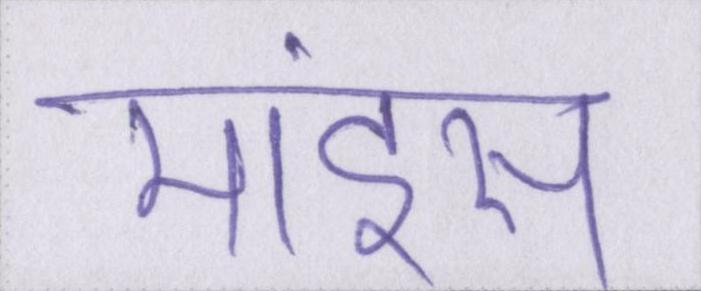 मांइस